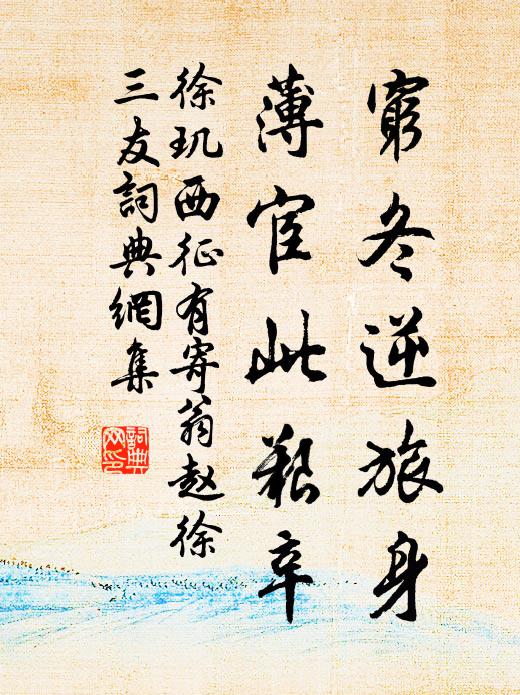 窮冬逆旅身
薄宦此艱辛
徐玑西征有寄翁赵徐
三友詞典網集
詞典
网印